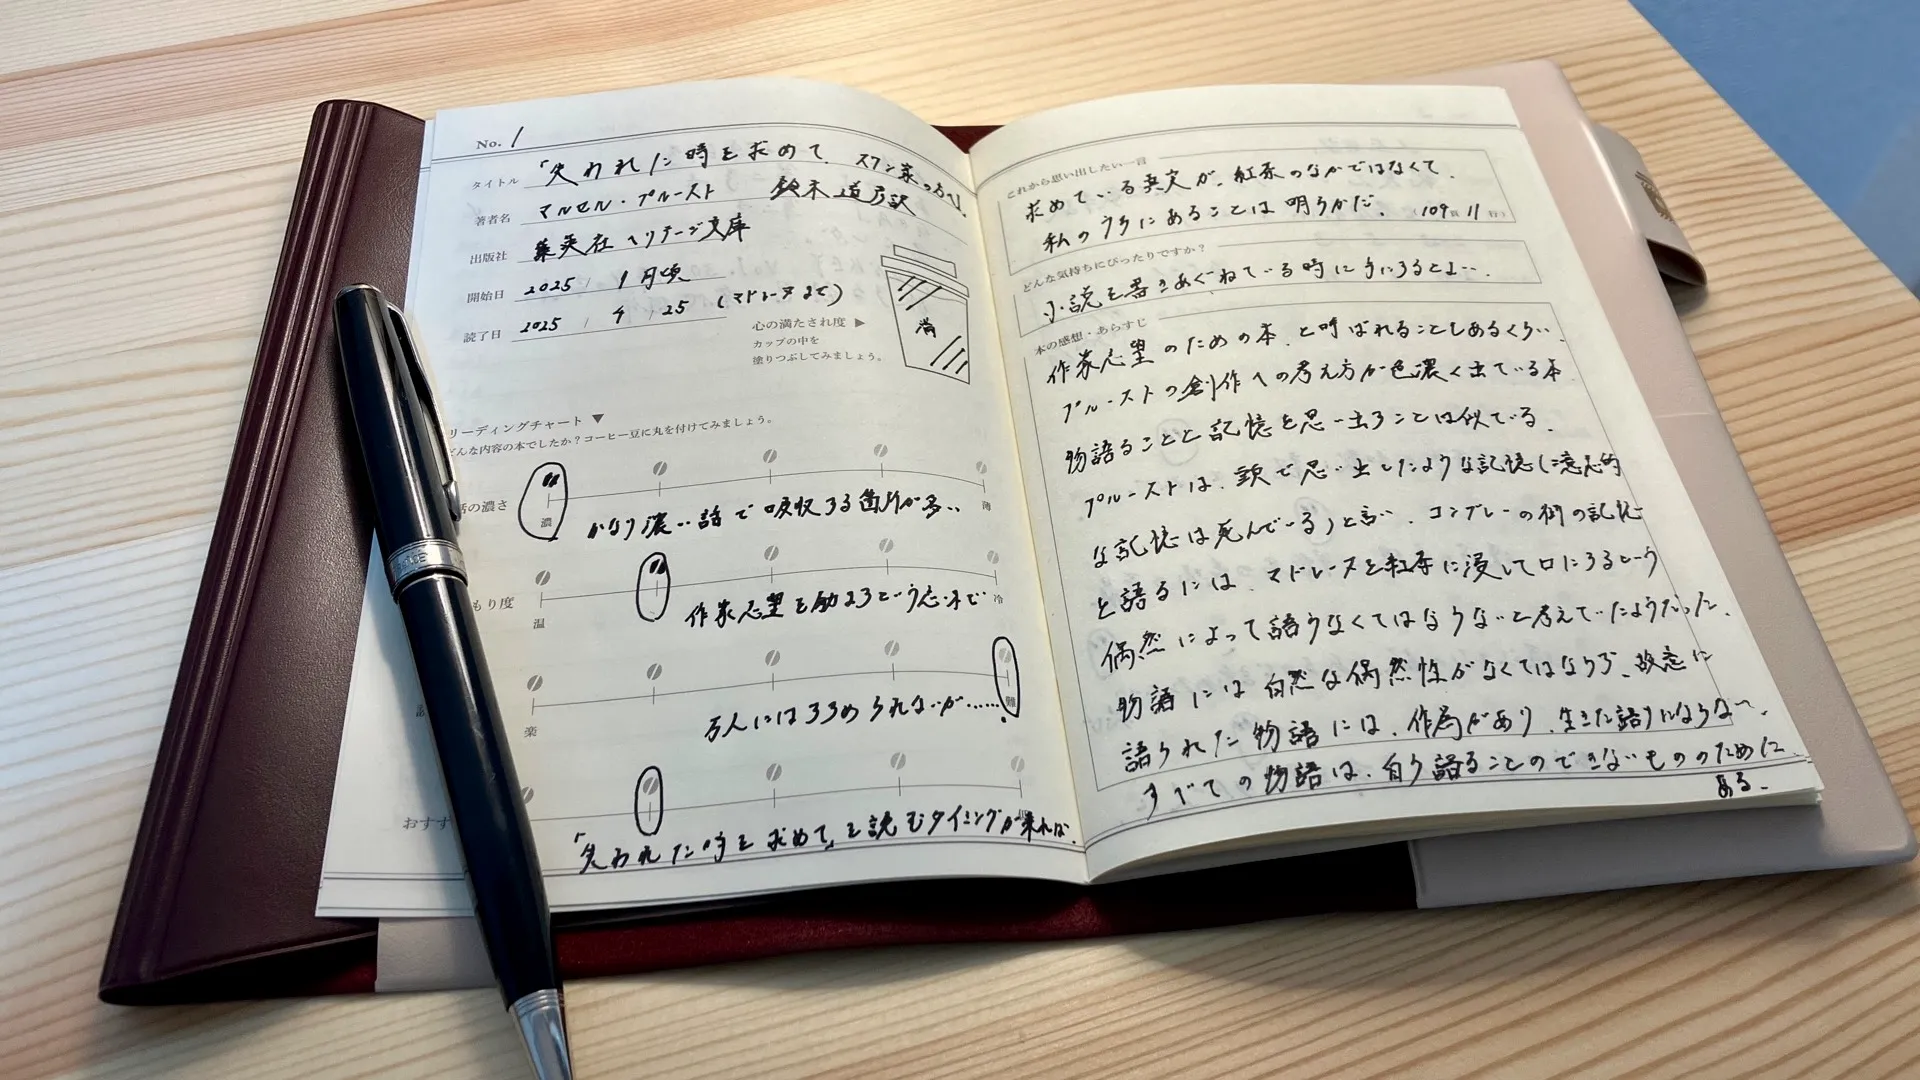 No. 1
タイトル 『失われた時を求めて』 スワン家の方へⅠ
著者名 マルセル・プルースト 鈴木道彦訳
出版社 集英社ヘリテージ文庫
開始日 2025 / 1月頃
読了日 2025 / 4 / 25 (マドレーヌまで)
心の満たされ度 ▶
カップの中を
塗りつぶしてみましょう。
満
リーディングチャート ▼
どんな内容の本でしたか?コーヒー豆に丸を付けてみましょう。
話の濃さ 濃 薄
かなり濃い話で吸収する箇所が多い
もり度 温 冷
作家志望を励ますという意味で
楽 難
万人にはすすめられないが……
おすす
『失われた時を求めて』を読むタイミングが来れば
これから思い出したい一言
求めている真実が、紅茶のなかではなくて、
私のうちにあることは明らかだ。 (109頁 11行)
どんな気持ちにぴったりですか?
小説を書きあぐねている時に手にするとよい。
本の感想・あらすじ
作家志望のための本、と呼ばれることもあるくらい、
プルーストの創作への考え方が色濃く出ている本
物語ることと記憶を思い出すことは似ている。
プルーストは、頭で思い出したような記憶(意志的
な記憶は死んでいる)と言い、コンブレーの街の記憶
を語るには、マドレーヌを紅茶に浸して口にするという
偶然によって語らなくてはならないと考えていたようだった。
物語には自然な偶然性がなくてはならず、故意に
語られた物語には、作為があり、生きた語りにならない。
すべての物語は、自ら語ることのできないもののために
ある。